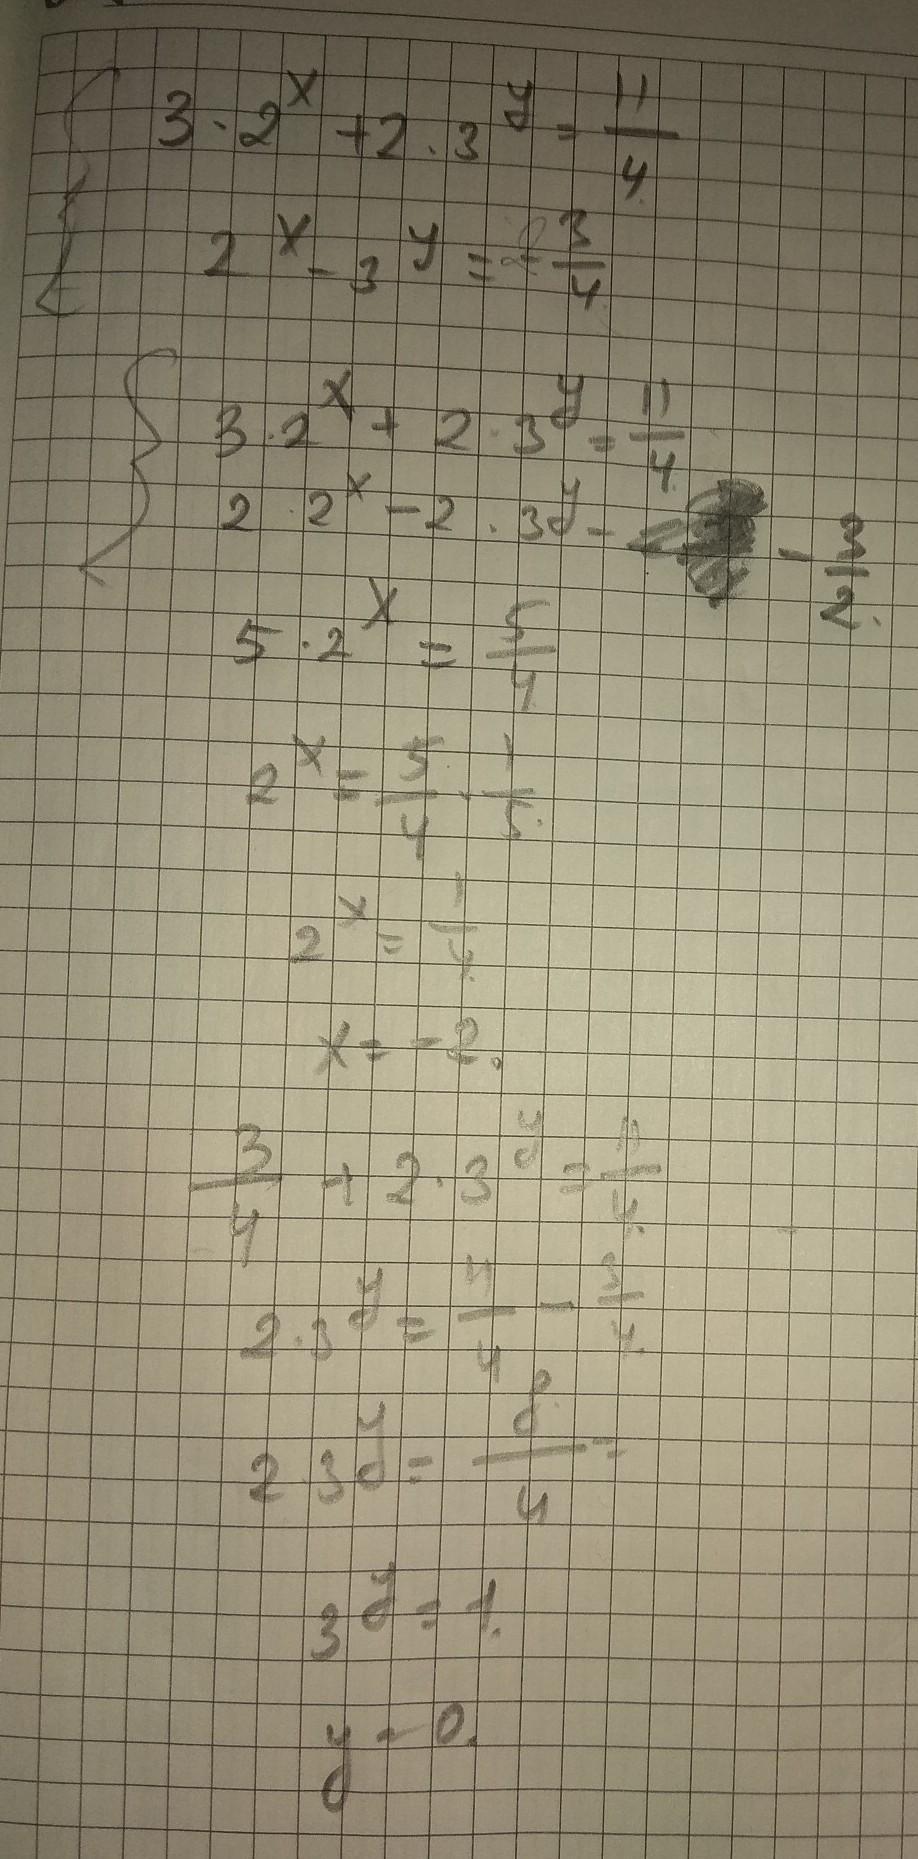 3 · 2^x + 2 · 3^y = 11/4
2^x - 3^y = - 3/4
3 · 2^x + 2 · 3^y = 11/4
2 · 2^x - 2 · 3^y = - 3/2.
5 · 2^x = 5/4
2^x = 5/4 · 1/5.
2^x = 1/4
x = -2.
3/4 + 2 · 3^y = 11/4.
2 · 3^y = 11/4 - 3/4.
2 · 3^y = 8/4 =
3^y = 1.
y = 0.